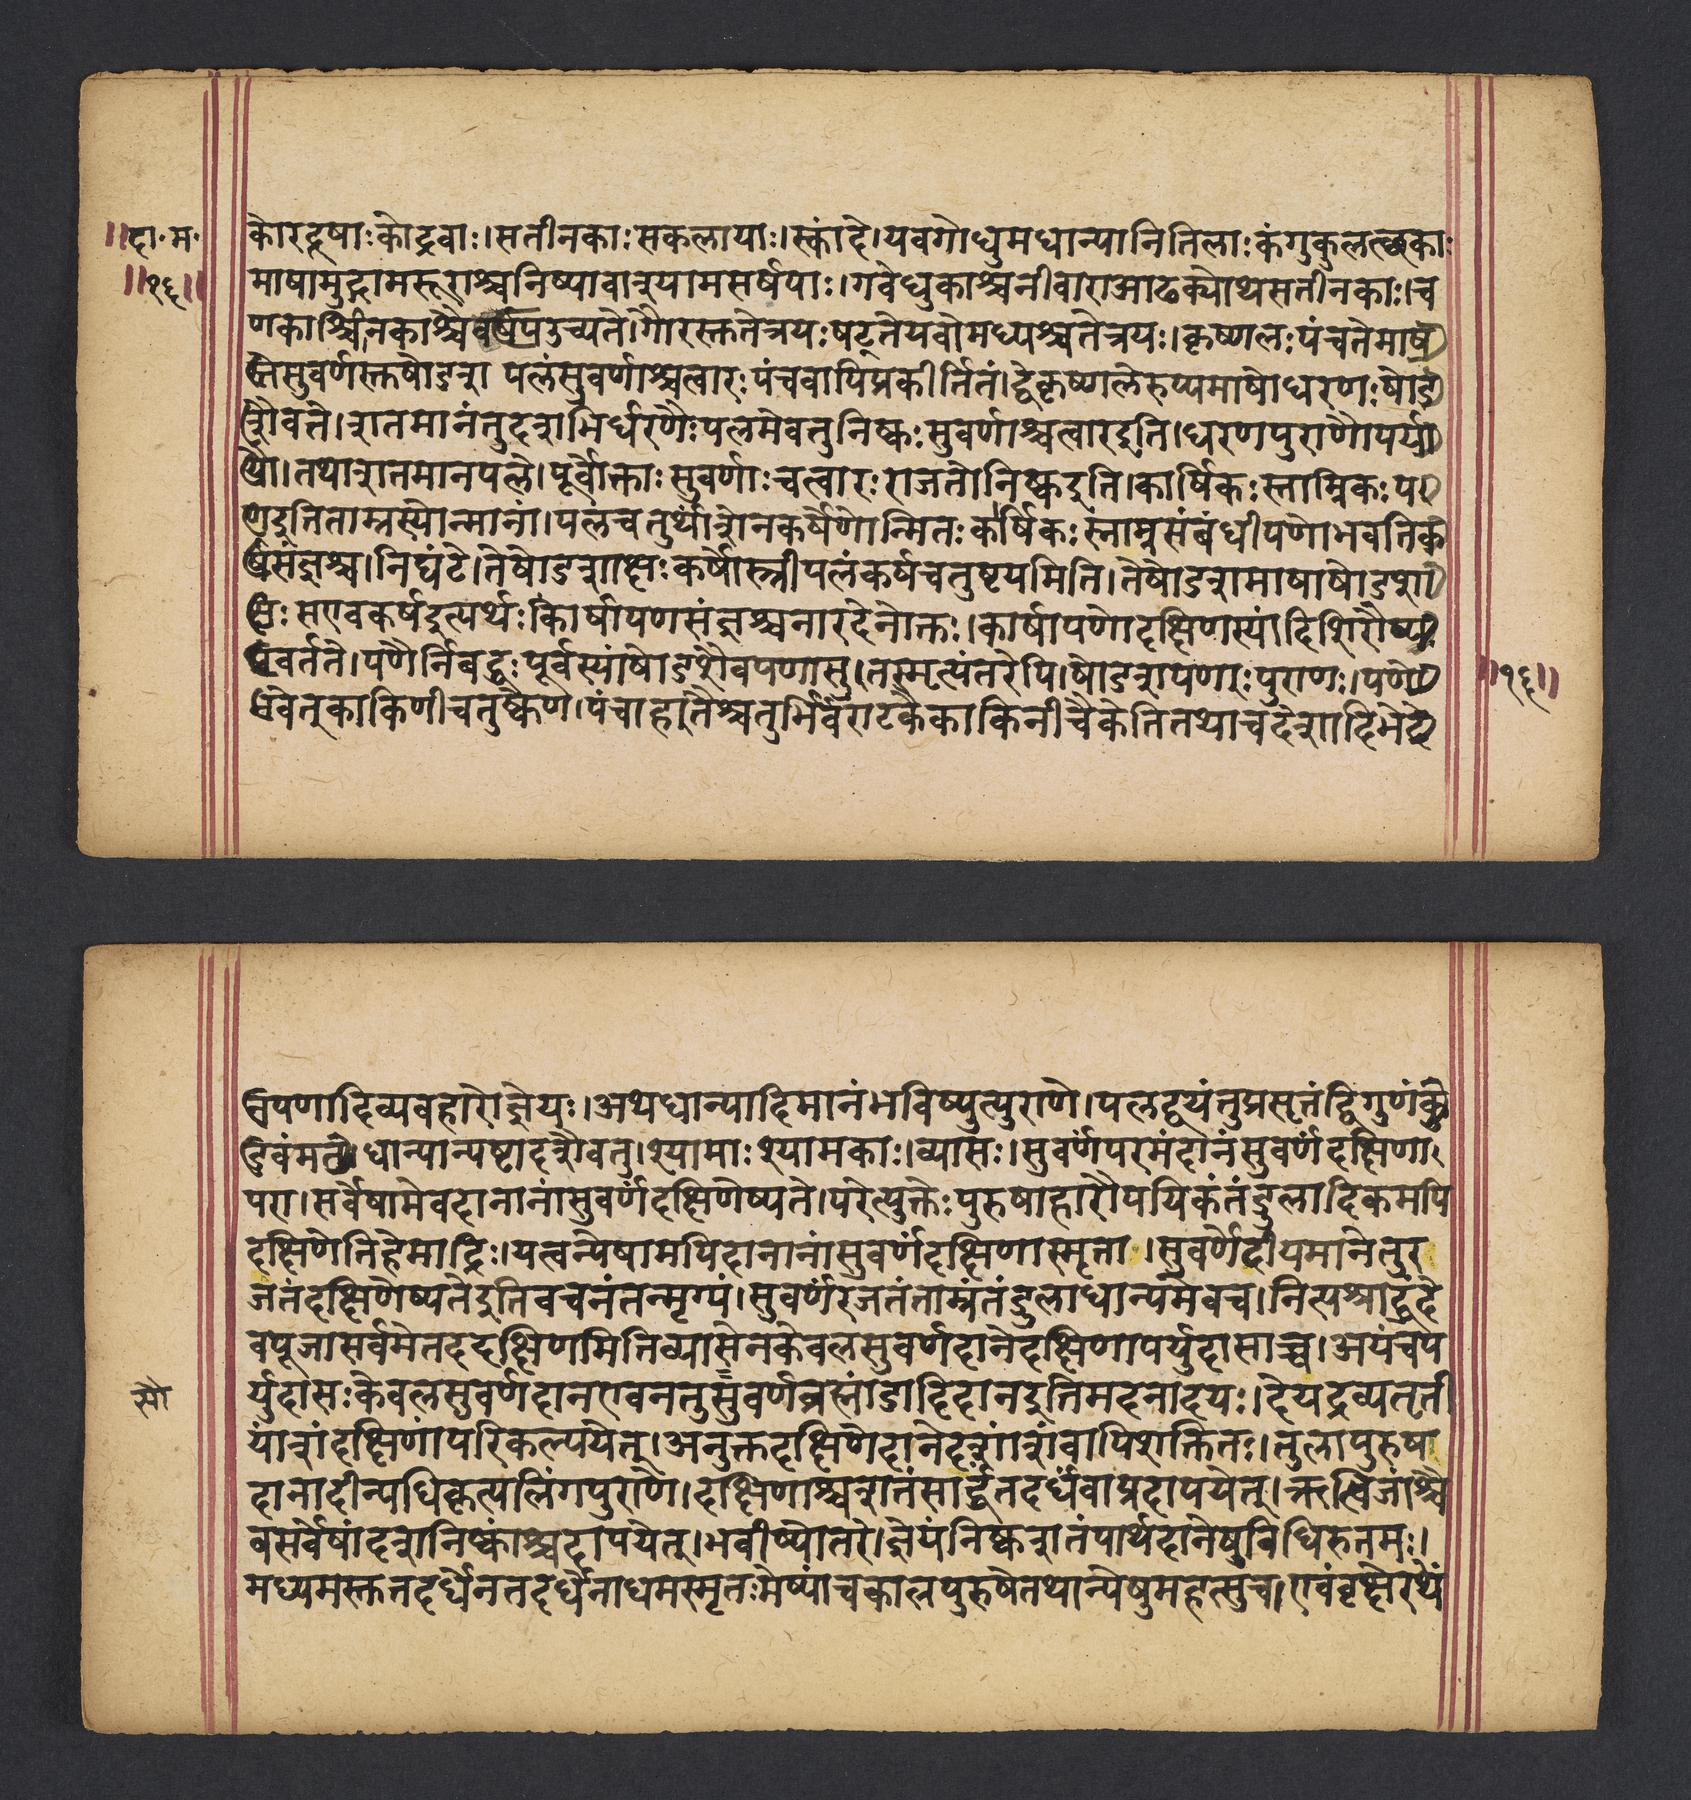 ॥दा॰म॰
॥१६॥
कोरदूषाःकोद्रवाः।सतीनकाःसकलायाः।स्कांदे।यवगोधुमधान्यानितिलाःकंगुकुलत्छकाः
माषामुद्गामसूराश्चनिष्पावाश्यामसर्षपाः।गवेधुकाश्चनीवाराआढक्योथसतीनकाः।च
णकाश्चिनकाश्चैव उच्यते।गौरस्कतेत्रयःषट्तेयवोमध्यश्चतेत्रयः।कृष्णलःपंचतेमाष
स्तेसुवर्णस्कषोडश पलंसुवर्णाश्चत्वारःपंचवापिप्रकीर्तितं।द्वेकृष्णलेरुप्यमाषोधरणःषोड
शैवते।शतमानंतुदशभिर्धरणैःपलमेवतुनिष्कःसुवर्णाश्चत्वारइति।धरणपुराणौपर्या
यौ।तथाशतमानपले।पूर्वोक्ताःसुवर्णाःचत्वारःराजतोनिष्कइति।कार्षिकःस्ताम्रिकःप
णइतिताम्रस्योन्मानां।पलंचतुर्थांशेनकर्षेणोन्मितःकर्षिकःस्ताम्रसंबंधीपणोभवतिक
र्षसंज्ञश्च।निघंटे।तेषोडशाक्षःकर्षोस्त्रीपलंकर्षचतुष्टयमिति।तेषोडशमाषाषोडशा
क्षः सएवकर्षइत्यर्थःकार्षापणसंज्ञश्चनारदेनोक्तः।कार्षापणोदृक्षिणस्यांदिशिरौप्यः
प्रवर्तते।पणैर्निबद्धःपूर्वस्यांषोडशैवपणासु।तस्मृत्यंतरेपि।षोडशपणाःपुराणः।पणो
भवेतुकाकिणीचतुष्केण।पंचाहातैश्चतुर्भिर्वराटकैकाकिनीचैकेतितथाचदेशादिभेदे
॥१६॥
नपणादिव्यवहारोज्ञेयः।अथधान्यादिमानंभविष्युत्पुराणे।पलद्वयंतुप्रसृतंद्विगुणंकु
डवंमतं।धान्यान्यष्टादशैवतु।श्यामाःश्यामकाः।व्यासः।सुवर्णंपरमंदानंसुवर्णंदक्षिणा
परा।सर्वेषामेवदानानांसुवर्णंदक्षिणेष्यते।परेत्युक्तेःपुरुषाहारौपयिकंतंडुलादिकमपि
दक्षिणेतिहेमाद्रिः।यत्वन्येषामपिदानानांसुवर्णंदक्षिणास्मृता।सुवर्णेदीयमानेतुर
जतंदक्षिणेष्यतेइतिवचनंतन्मृग्यं।सुवर्णंरजतंताम्रंतंडुलाधान्यमेवच।नित्यश्राद्धंदे
वपूजासर्वमेतददक्षिणमितिव्यासेनकेवलसुवर्णदानेदक्षिणापर्युदासाच्च।अयंचप
र्युदासःकेवलसुवर्णदानएवनतुसुवर्णब्रह्मांडादिदानइतिमदनादयः।देयद्रव्यतृती
यांशंदक्षिणांपरिकल्पयेत्।अनुक्तदृक्षिणेदानेदशांशंवापिशक्तितः।तुलापुरुषा
दानादीन्यधिकृत्यलिंगपुराणे।दक्षिणाश्चशतंसार्द्धंतदर्धंवाप्रदापयेत्।ऋत्विजांश्चै
वसर्वेषांदशनिष्कांश्चदापयेत्।भवीष्योतरे।ज्ञेयंनिष्कशतंपार्थदानेषुविधिरुतमः।
मध्यमस्कतदर्धेनतदर्धेनाधमस्मृतःमेष्यांचकालपुरुषेतथान्येषुमहत्सुच।एवंवृक्षेरथे